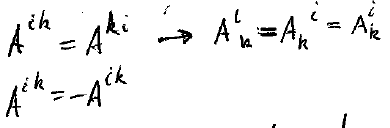 A^{ik} = A^{ki} → A^{i}{}_{k} = A_{k}{}^{i} = A^{i}_{k}
A^{ik} = -A^{ik}